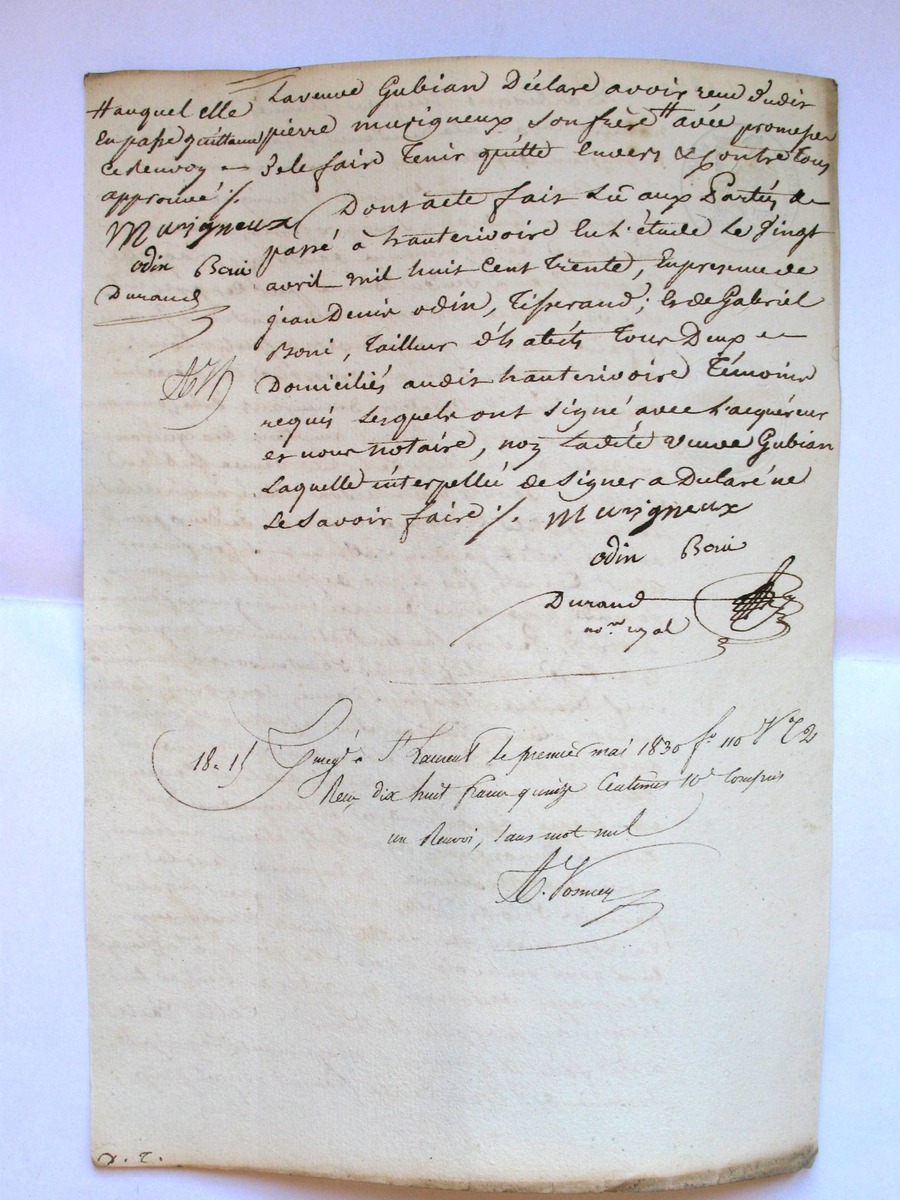 # auquel elle
En passe quittance
ce Renvoy
approuvé ./.
Murigneux
odin Boni
Durand
AV
La veuve Gubian Déclare avoir reçu dudit
pierre murigneux son frère # avec promesse
de le faire Tenir quitte Envers & contre Tous
Dont acte fait Lû aux Parties &
passé à hauterivoire En L'étude Le Vingt
avril mil huit Cent Trente, En presence de
jean Denis odin, Tisserand, & de Gabriel
Boni, Tailleur d'habits Tous Deux
Domiciliés audit hauterivoire Témoins
requis Lesquels ont signé avec L'acquéreur
et nous notaire, non Ladite veuve Gubian
Laquelle interpellée de Signer a Déclaré ne
Le Savoir faire ./. Murigneux
odin Boni
Durand
no.re royal
18. 15 Enregé à St Laurent le premier mai 1830 fo 110 Vo C 2
Reçu dix huit francs quinze Centimes 10e Compris
un Renvoi, sans mot nul